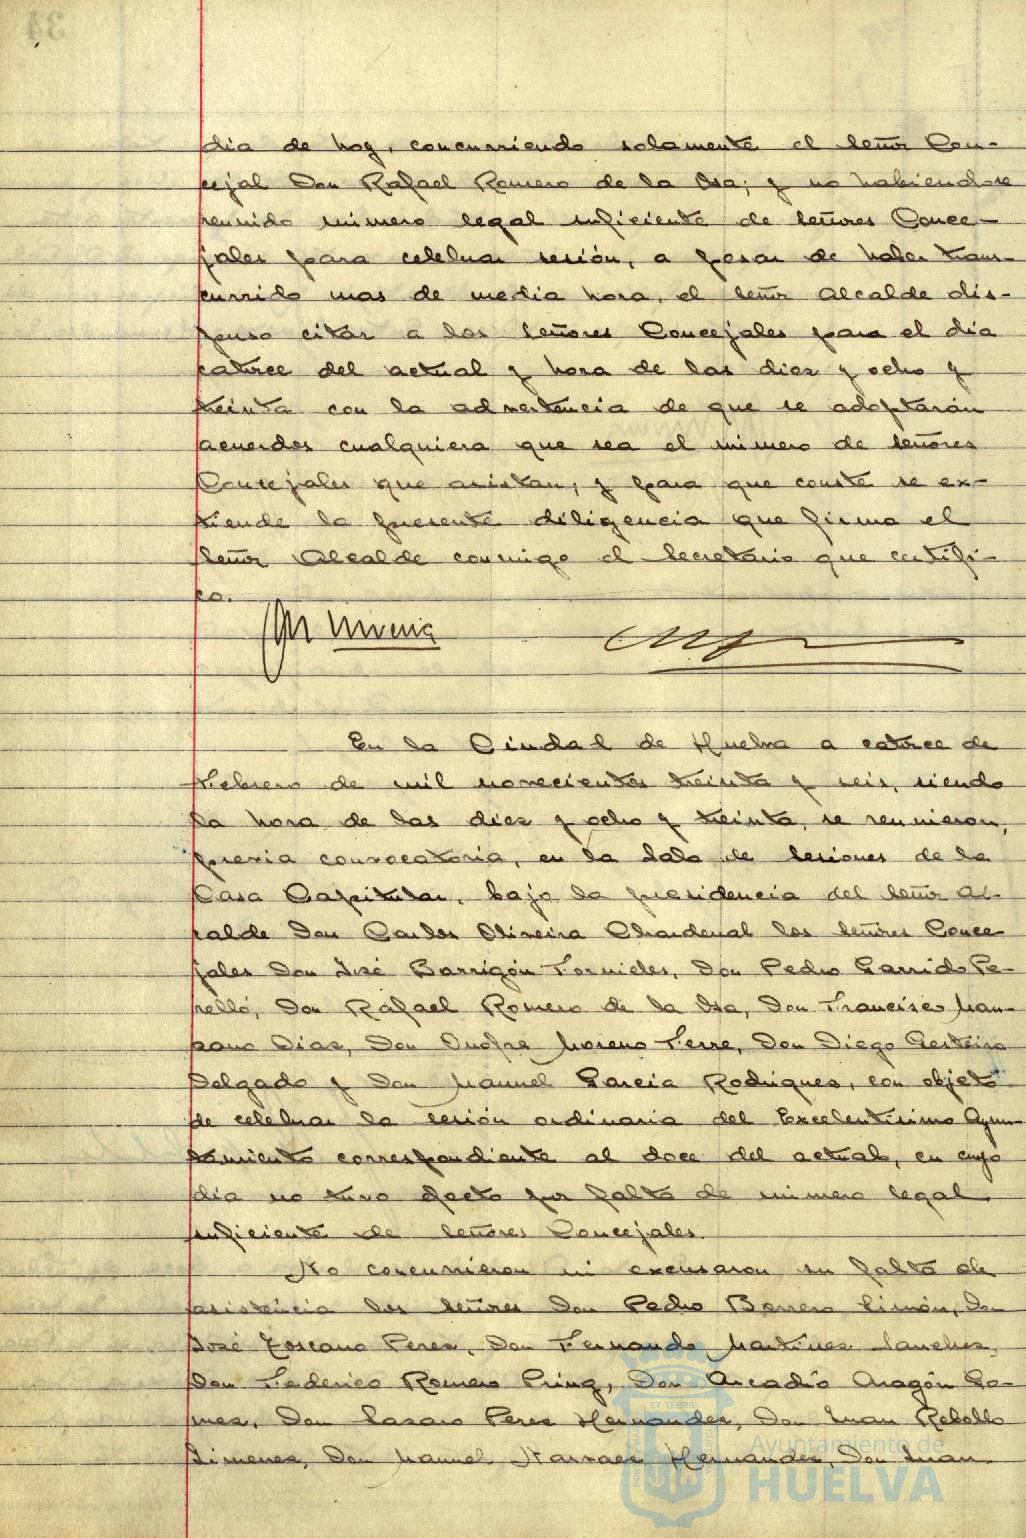 dia de hoy, concurriendo solamente el Señor Con-
cejal Don Rafael Romero de la Osa; y no habiendose
reunido número legal suficiente de Señores Conce-
jales para celebrar sesión, a pesar de haber trans-
currido mas de media hora, el Señor Alcalde dis-
puso citar a los Señores Concejales para el dia
catorce del actual y hora de las diez y ocho y
treinta con la advertencia de que se adoptarán
acuerdos cualquiera que sea el número de Señores
Concejales que asistan; y para que conste se ex-
tiende la presente diligencia que firma el
Señor Alcalde conmigo el Secretario que certifi-
co.
En la Ciudad de Huelva a catorce de
Febrero de mil novecientos treinta y seis, siendo
la hora de las diez y ocho y treinta, se reunieron,
previa convocatoria, en la Sala de Sesiones de la
Casa Capitular, bajo la presidencia del Señor Al-
calde Don Carlos Oliveira Chardenal los Señores Conce
jales Don José Barrigón Fornieles, Don Pedro Garrido Pe-
relló, Don Rafael Romero de la Osa, Don Francisco Man-
zano Diaz, Don Onofre Moreno Ferre, Don Diego
Delgado y Don Manuel Garcia Rodriguez, con objeto
de celebrar la sesión ordinaria del Excelentísimo Ayun-
tamiento correspondiente al doce del actual, en cuyo
dia no tuvo efecto por falta de número legal
suficiente de Señores Concejales.
No concurrieron ni excusaron su falta de
asistencia los Señores Don Pedro Borrero Limón, Don
José Toscano Perez, Don Fernando Martinez Sanchez,
Don Federico Romero Don Arcadio Aragón Go-
mez, Don Lazaro Perez Hernandez, Don Juan Rebollo
Jimenez, Don Manuel Narvaez Hernandez, Don Juan
Ayuntamiento de
HUELVA